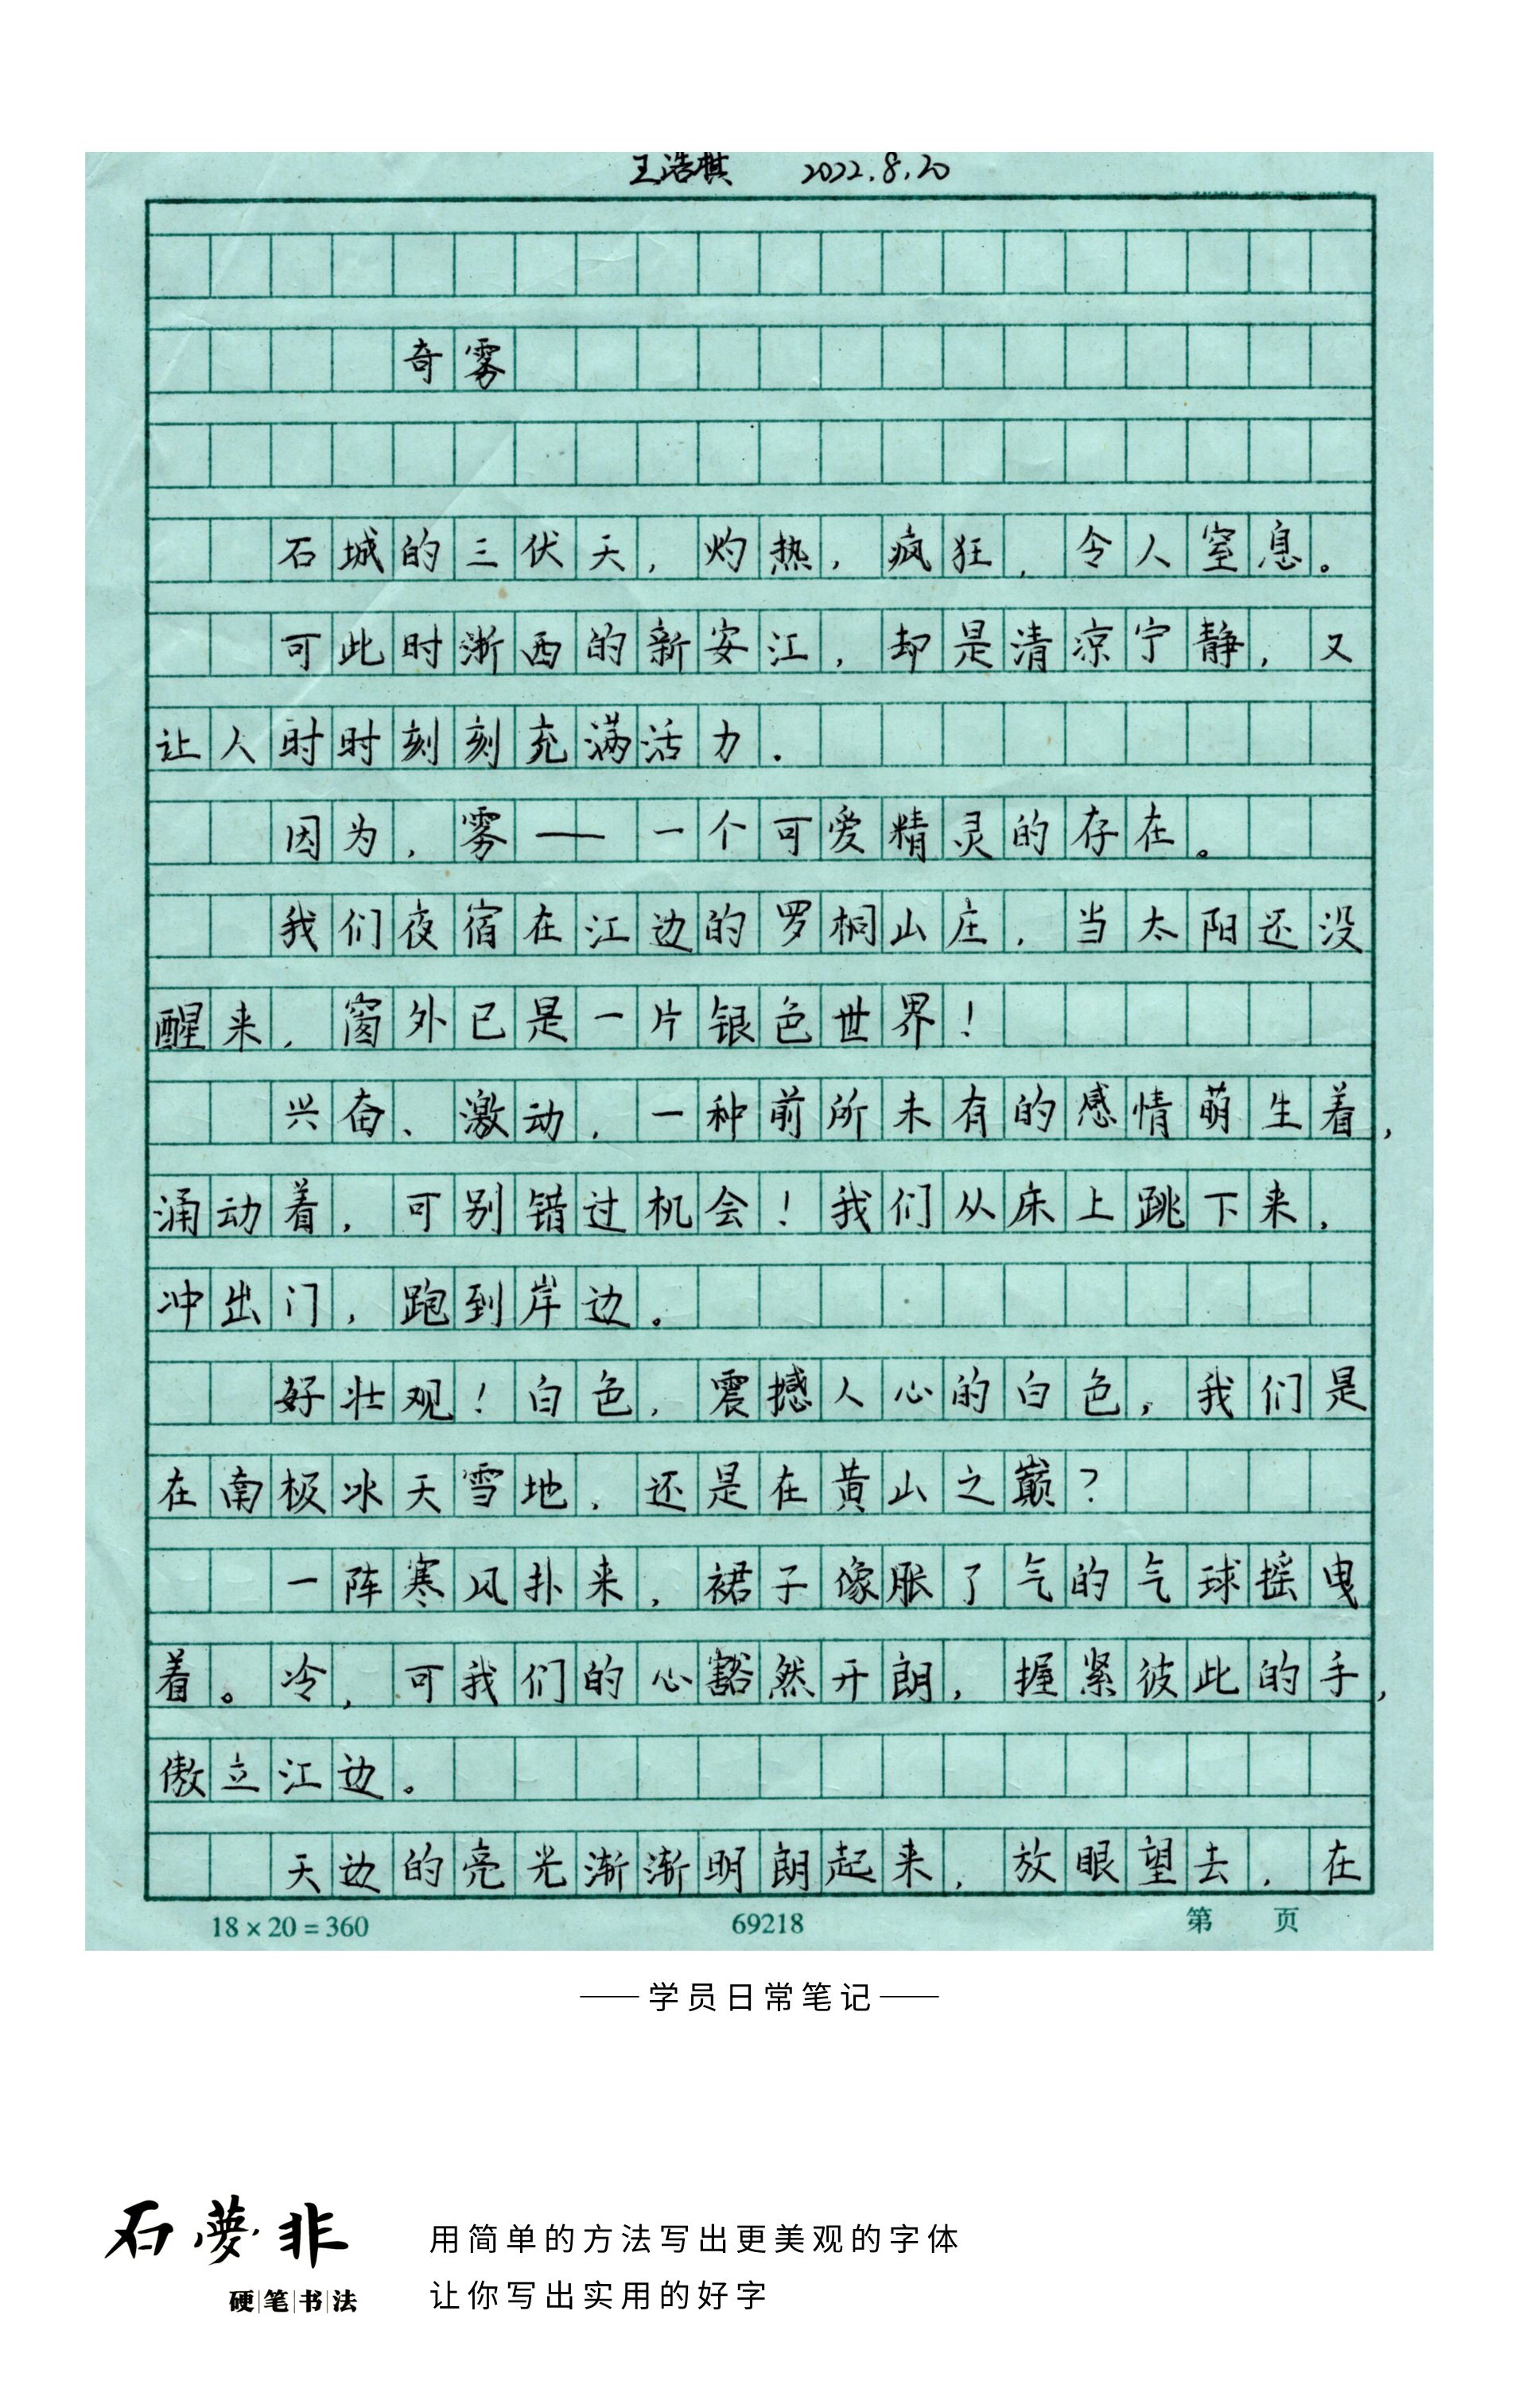 王浩棋 2022.8.20
奇雾
石城的三伏天，灼热，疯狂，令人窒息。
可此时浙西的新安江，却是清凉宁静，又
让人时时刻刻充满活力.
因为，雾——一个可爱精灵的存在。
我们夜宿在江边的罗桐山庄，当太阳还没
醒来，窗外已是一片银色世界！
兴奋、激动，一种前所未有的感情萌生着，
涌动着，可别错过机会！我们从床上跳下来，
冲出门，跑到岸边。
好壮观！白色，震撼人心的白色，我们是
在南极冰天雪地，还是在黄山之巅？
一阵寒风扑来，裙子像胀了气的气球摇曳
着。冷，可我们的心豁然开朗，握紧彼此的手，
傲立江边。
天边的亮光渐渐明朗起来，放眼望去，在
18×20=360 69218 第 页
——学员日常笔记——
石夢非
硬笔书法
用简单的方法写出更美观的字体
让你写出实用的好字